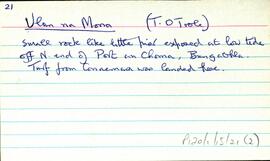 21
Ulan na Mona (T. O Toole)
Small rock like little pier exposed at low tide
off N end of Port an Choma, Bungabhla.
Turf from Connemara was landed here.
(2)